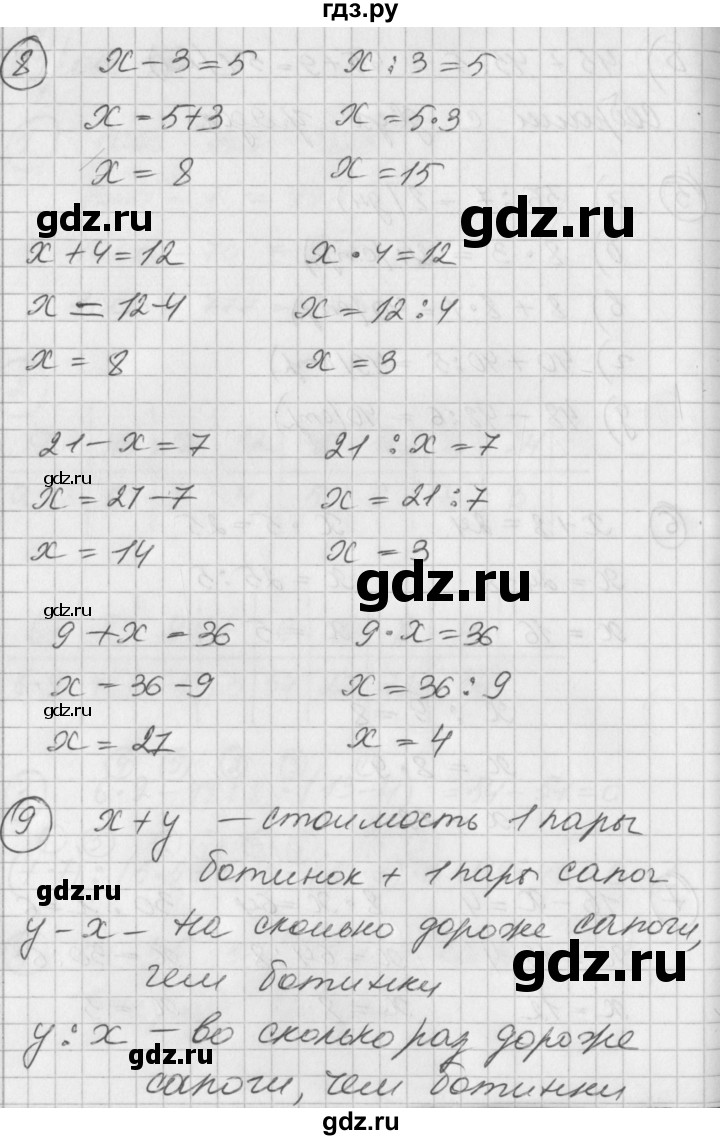 гдз.ру
8 x - 3 = 5 x : 3 = 5
x = 5+3 x = 5·3
x = 8 x = 15
gdz.ru gdz.ru
x + 4 = 12 x · 4 = 12
x = 12-4 x = 12 : 4
x = 8 x = 3
21 - x = 7 21 : x = 7
gdz.ru
x = 21-7 x = 21 : 7
x = 14 x = 3
gdz.ru
gdz.ru
9 + x = 36 9 · x = 36
x = 36-9 x = 36 : 9
gdz.ru
x = 27 x = 4
9 x + y - стоимость 1 пары
ботинок + 1 пары сапог
gdz.ru
y - x - на сколько дороже сапоги,
gdz.ru
чем ботинки
y : x - во сколько раз дороже
gdz.ru
сапоги, чем ботинки
gdz.ru